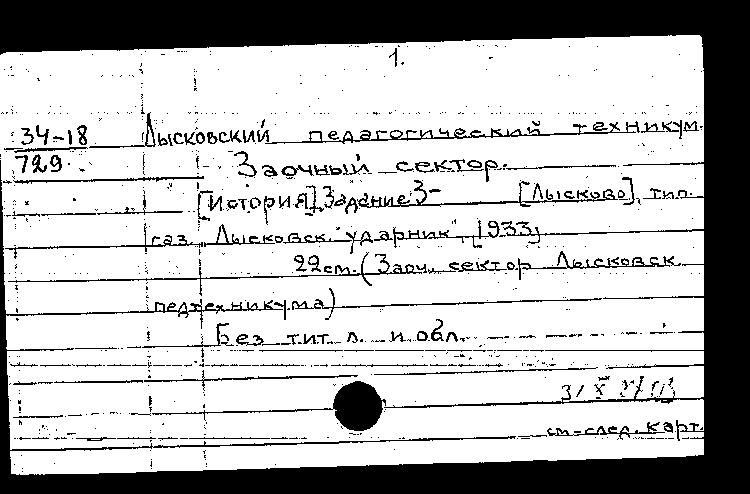 1.
34-18 Лысковский педагогический техникум.
729. Заочный сектор.
[История]. Задание 3- [Лысково], тип.
газ. "Лысковск. ударник", [1933]
22см. (Заоч. сектор Лысковск.
педтехникума)
Без тит. л. и обл.
31 X
см-след. карт.